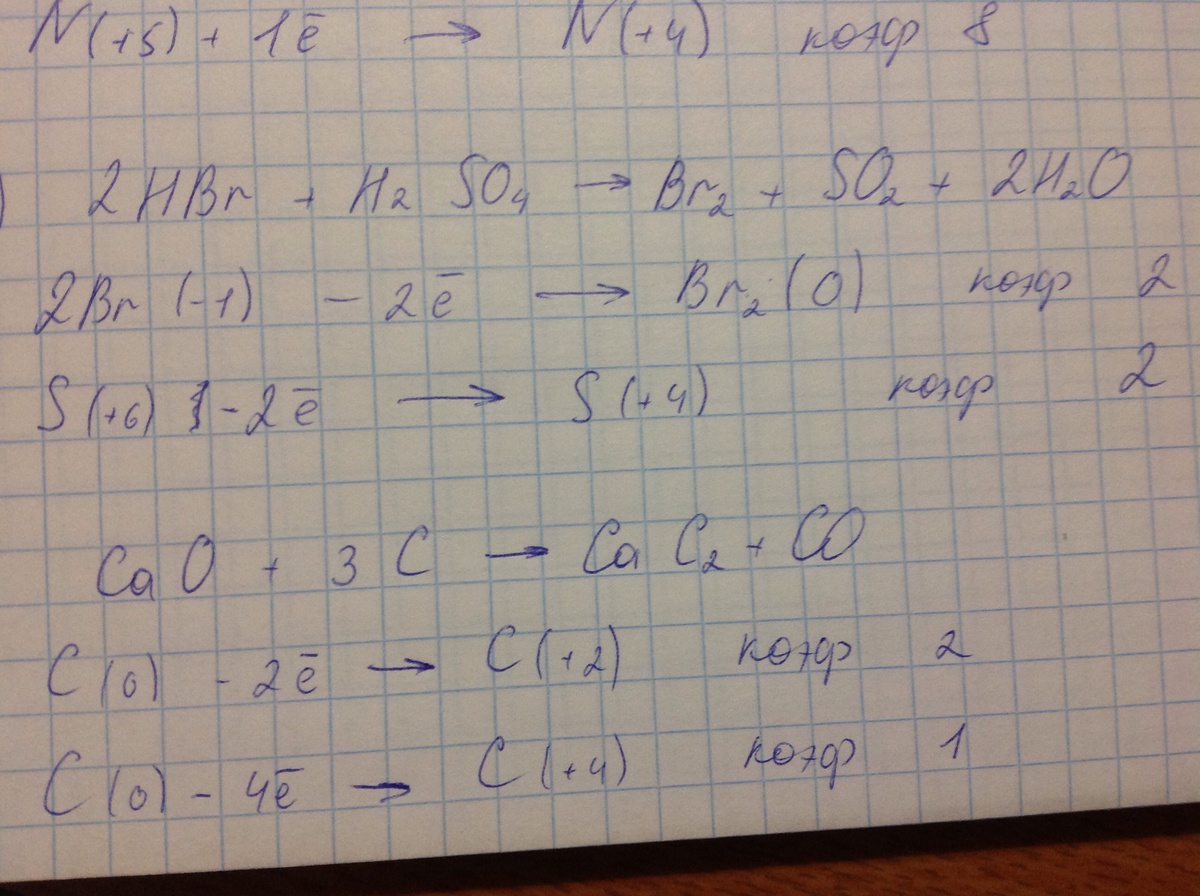 N(+5) + 1ē → N(+4) коэф 8
) 2HBr + H₂SO₄ → Br₂ + SO₂ + 2H₂O
2Br (-1) - 2ē → Br₂(0) коэф 2
S(+6) - 2ē → S(+4) коэф 2
CaO + 3C → CaC₂ + CO
C(0) - 2ē → C(+2) коэф 2
C(0) - 4ē → C(+4) коэф 1